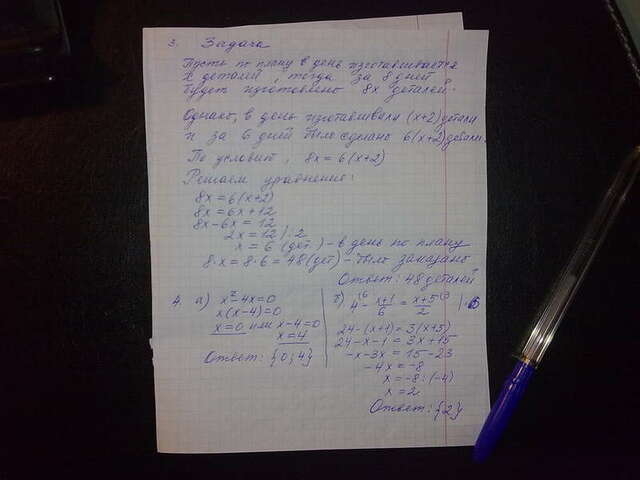 3. Задача
Пусть по плану в день изготавливается
x деталей, тогда за 8 дней
будет изготовлено 8x деталей.
Однако, в день изготавливали (x+2) детали
и за 6 дней было сделано 6(x+2) детали.
По условию, 8x = 6(x+2)
Решаем уравнение:
8x = 6(x+2)
8x = 6x + 12
8x - 6x = 12
2x = 12 | : 2
x = 6 (дет) - в день по плану
8·x = 8·6 = 48 (дет) - было заказано
Ответ: 48 деталей
4. а) x² - 4x = 0
x(x-4) = 0
x = 0 или x - 4 = 0
x = 4
Ответ: {0; 4}
б) 4 - (x+1)/6 = (x+5)/2 | · 6
24 - (x+1) = 3(x+5)
24 - x - 1 = 3x + 15
-x - 3x = 15 - 23
-4x = -8
x = -8 : (-4)
x = 2
Ответ: {2}